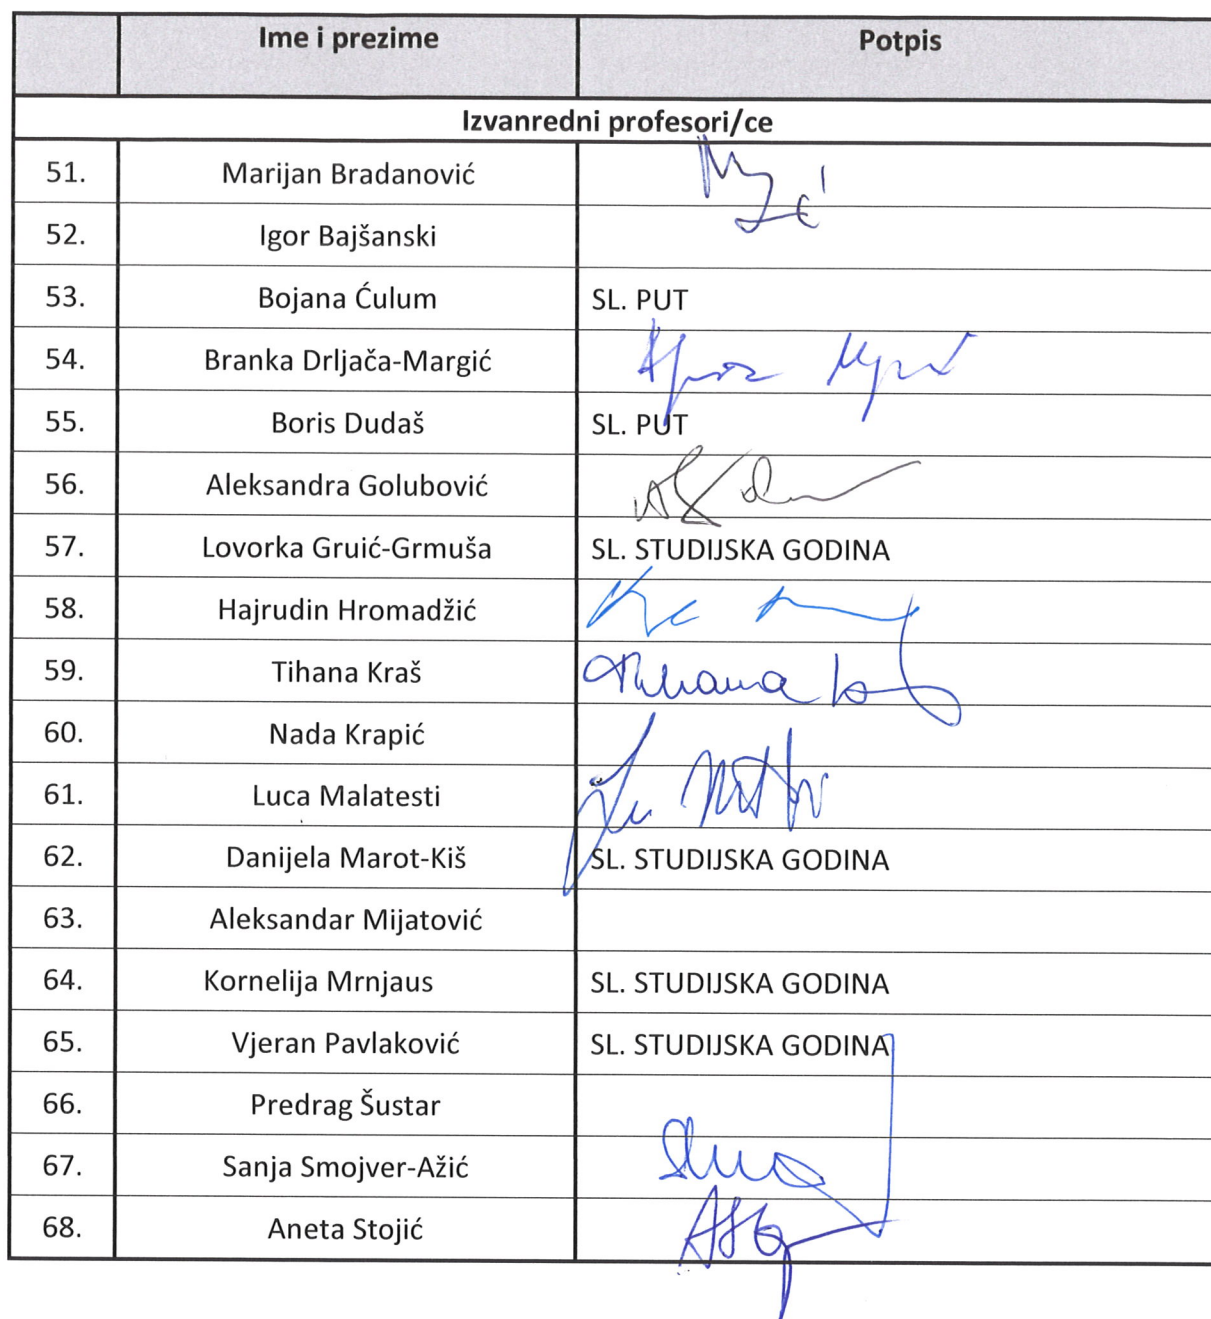 Ime i prezime Potpis
Izvanredni profesori/ce
51. Marijan Bradanović
52. Igor Bajšanski
53. Bojana Ćulum SL. PUT
54. Branka Drljača-Margić
55. Boris Dudaš SL. PUT
56. Aleksandra Golubović
57. Lovorka Gruić-Grmuša SL. STUDIJSKA GODINA
58. Hajrudin Hromadžić
59. Tihana Kraš Tihana
60. Nada Krapić
61. Luca Malatesti
62. Danijela Marot-Kiš SL. STUDIJSKA GODINA
63. Aleksandar Mijatović
64. Kornelija Mrnjaus SL. STUDIJSKA GODINA
65. Vjeran Pavlaković SL. STUDIJSKA GODINA
66. Predrag Šustar
67. Sanja Smojver-Ažić
68. Aneta Stojić